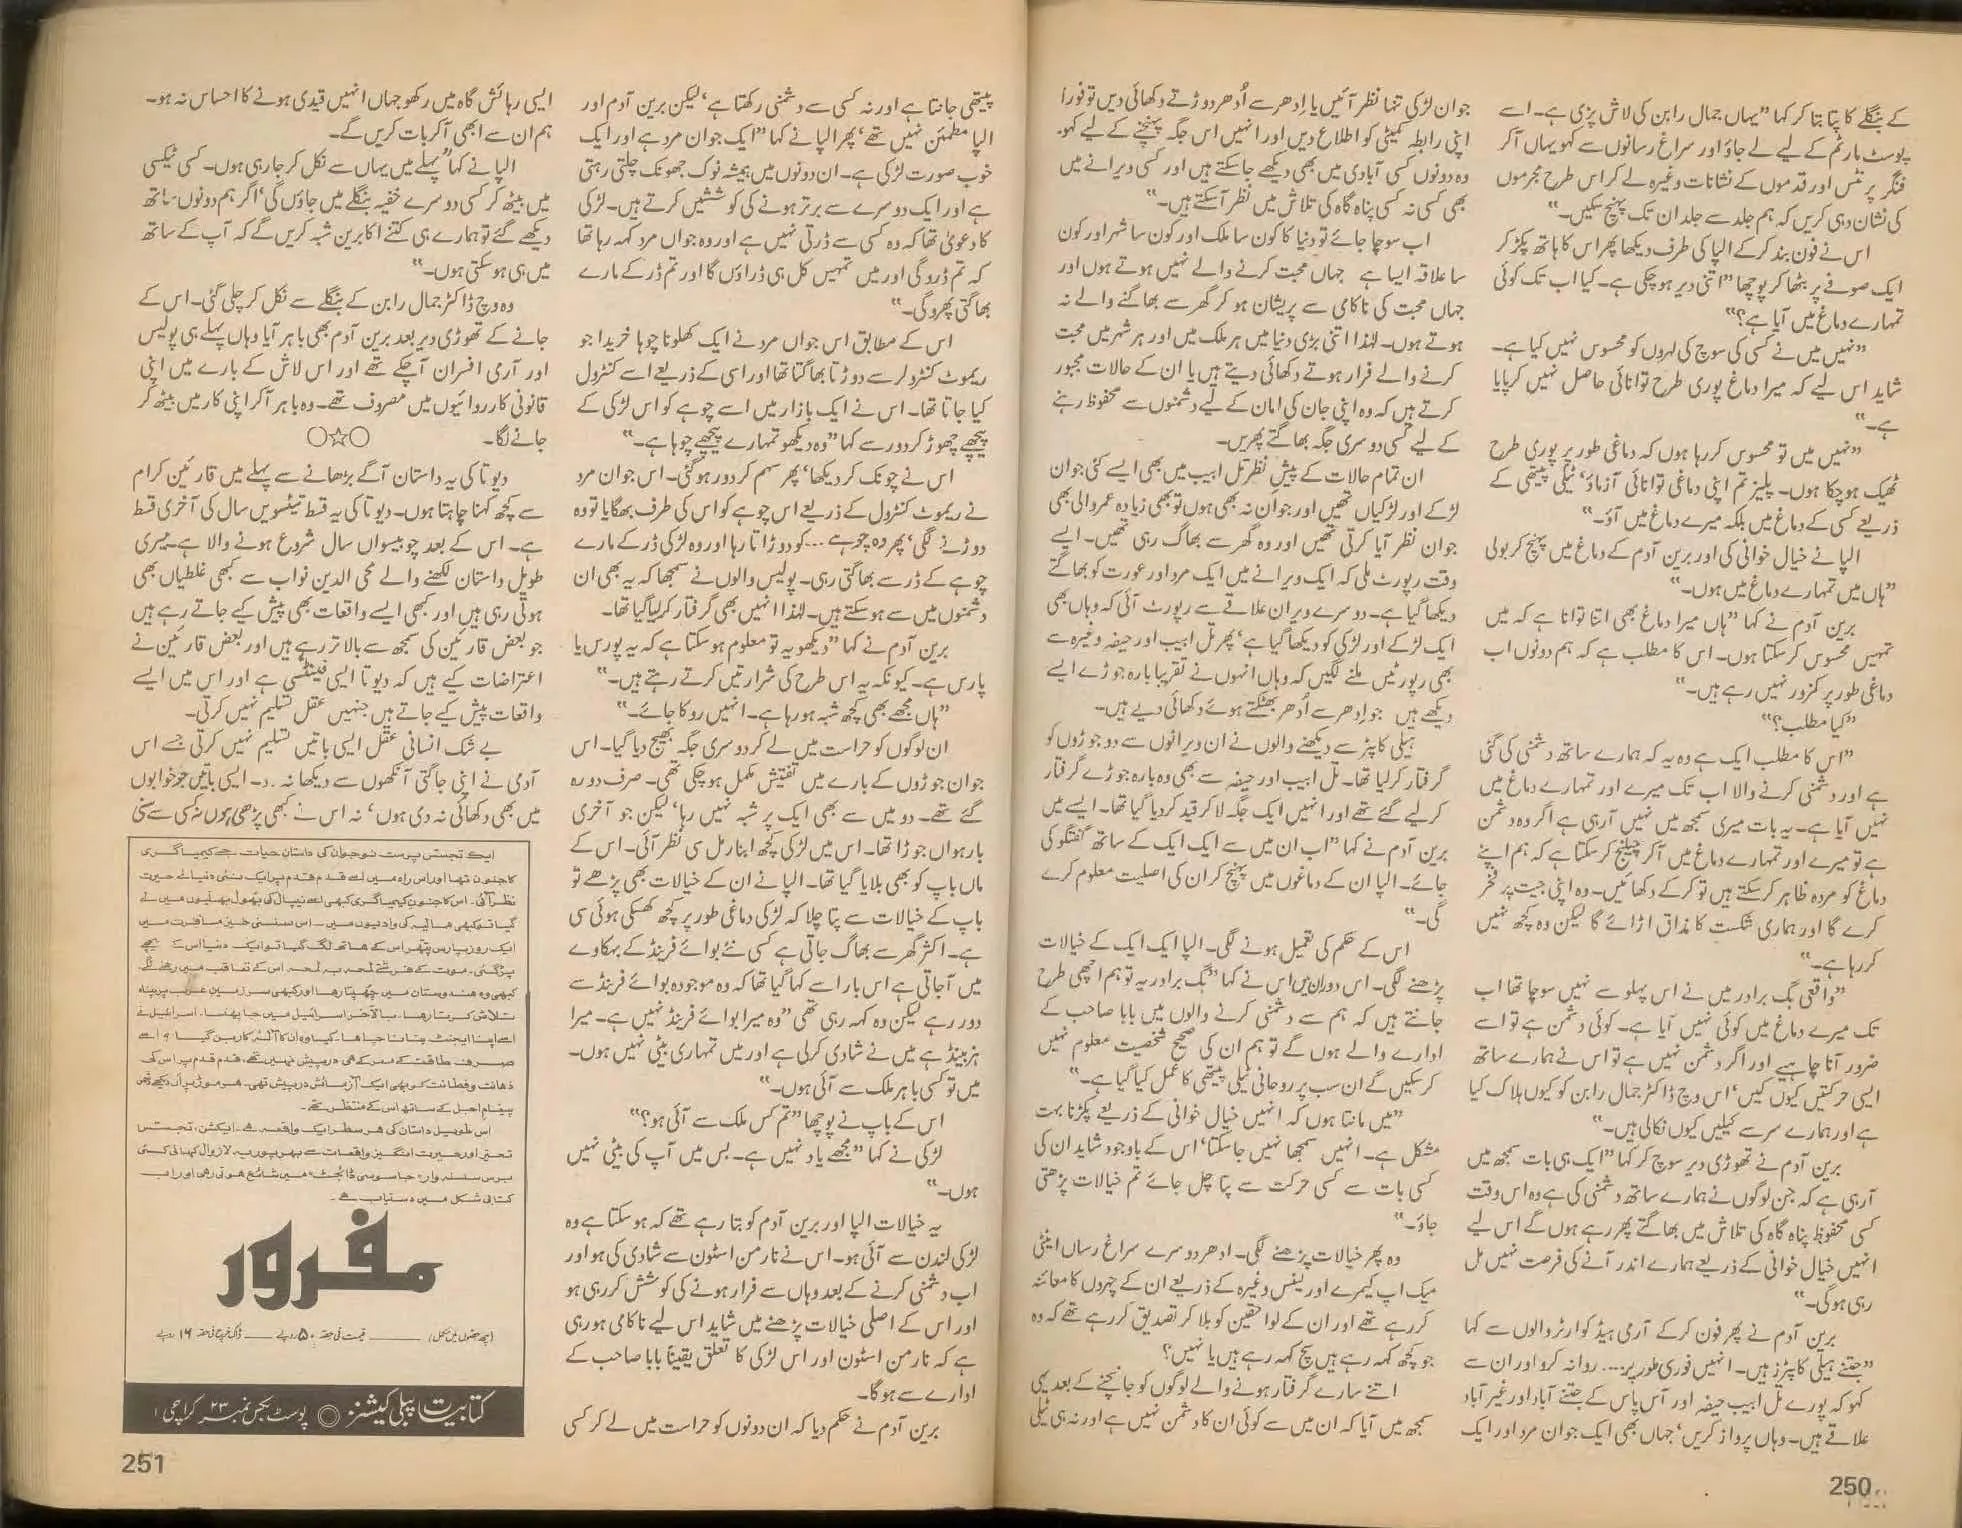 کے بنگلے کا پتا بتا کر کہا "یہاں جمال رابن کی لاش پڑی ہے۔ اسے
پوسٹ مارٹم کے لیے لے جاؤ اور سراغ رسانوں سے کہو یہاں آکر
فنگر پرنٹس اور قدموں کے نشانات وغیرہ لے کر اس طرح مجرموں
کی نشان دہی کریں کہ ہم جلد سے جلد ان تک پہنچ سکیں۔"
اس نے فون بند کر کے الپا کی طرف دیکھا پھر اس کا ہاتھ پکڑ کر
ایک صوفے پر بٹھا کر پوچھا "اتنی دیر ہو چکی ہے۔ کیا اب تک کوئی
تمہارے دماغ میں آیا ہے؟"
"نہیں میں نے کسی کی سوچ کی لہروں کو محسوس نہیں کیا ہے۔
شاید اس لیے کہ میرا دماغ پوری طرح توانائی حاصل نہیں کر پایا
ہے۔"
"نہیں میں تو محسوس کر رہا ہوں کہ دماغی طور پر پوری طرح
ٹھیک ہو چکا ہوں۔ پلیز تم اپنی دماغی توانائی آزماؤ، ٹیلی پیتھی کے
ذریعے کسی کے دماغ میں بلکہ میرے دماغ میں آؤ۔"
الپا نے خیال خوانی کی اور برین آدم کے دماغ میں پہنچ کر بولی
"ہاں میں تمہارے دماغ میں ہوں۔"
برین آدم نے کہا "ہاں میرا دماغ بھی اتنا توانا ہے کہ میں
تمہیں محسوس کر سکتا ہوں۔ اس کا مطلب ہے کہ ہم دونوں اب
دماغی طور پر کمزور نہیں رہے ہیں۔"
"کیا مطلب؟"
"اس کا مطلب ایک ہے وہ یہ کہ ہمارے ساتھ دشمنی کی گئی
ہے اور دشمنی کرنے والا اب تک میرے اور تمہارے دماغ میں
نہیں آیا ہے۔ یہ بات میری سمجھ میں نہیں آرہی ہے اگر وہ دشمن
ہے تو میرے اور تمہارے دماغ میں آکر چیلنج کر سکتا ہے کہ ہم اپنے
دماغ کو مردہ ظاہر کر سکتے ہیں تو کر کے دکھائیں۔ وہ اپنی جیت پر فخر
کرے گا اور ہماری شکست کا مذاق اڑائے گا لیکن وہ کچھ نہیں
کر رہا ہے۔"
"واقعی بگ برادر میں نے اس پہلو سے نہیں سوچا تھا اب
تک میرے دماغ میں کوئی نہیں آیا ہے۔ کوئی دشمن ہے تو اسے
ضرور آنا چاہیے اور اگر دشمن نہیں ہے تو اس نے ہمارے ساتھ
ایسی حرکتیں کیوں کیں، اس وچ ڈاکٹر جمال رابن کو کیوں ہلاک کیا
ہے اور ہمارے سر سے کیلیں کیوں نکالی ہیں۔"
برین آدم نے تھوڑی دیر سوچ کر کہا "ایک ہی بات سمجھ میں
آرہی ہے کہ جن لوگوں نے ہمارے ساتھ دشمنی کی ہے وہ اس وقت
کسی محفوظ پناہ گاہ کی تلاش میں بھاگتے پھر رہے ہوں گے اس لیے
انہیں خیال خوانی کے ذریعے ہمارے اندر آنے کی فرصت نہیں مل
رہی ہوگی۔"
برین آدم نے پھر فون کر کے آرمی ہیڈ کوارٹر والوں سے کہا
"جتنے ہیلی کاپٹرز ہیں۔ انہیں فوری طور پر.... روانہ کرو اور ان سے
کہو کہ پورے تل ابیب حیفہ اور آس پاس کے جتنے آباد اور غیر آباد
علاقے ہیں۔ وہاں پرواز کریں، جہاں بھی ایک جوان مرد اور ایک
جوان لڑکی تنہا نظر آئیں یا اِدھر سے اُدھر دوڑتے دکھائی دیں تو فوراً
اپنی رابطہ کمیٹی کو اطلاع دیں اور انہیں اس جگہ پہنچنے کے لیے کہو۔
وہ دونوں کسی آبادی میں بھی دیکھے جاسکتے ہیں اور کسی ویرانے میں
بھی کسی نہ کسی پناہ گاہ کی تلاش میں نظر آسکتے ہیں۔"
اب سوچا جائے تو دنیا کا کون سا ملک اور کون سا شہر اور کون
سا علاقہ ایسا ہے جہاں محبت کرنے والے نہیں ہوتے ہوں اور
جہاں محبت کی ناکامی سے پریشان ہو کر گھر سے بھاگنے والے نہ
ہوتے ہوں۔ لہٰذا اتنی بڑی دنیا میں ہر ملک میں اور ہر شہر میں محبت
کرنے والے فرار ہوتے دکھائی دیتے ہیں یا ان کے حالات مجبور
کرتے ہیں کہ وہ اپنی جان کی امان کے لیے دشمنوں سے محفوظ رہنے
کے لیے کسی دوسری جگہ بھاگتے پھریں۔
ان تمام حالات کے پیش نظر تل ابیب میں بھی ایسے کئی جوان
لڑکے اور لڑکیاں تھیں اور جوان نہ بھی ہوں تو بھی زیادہ عمر والی بھی
جوان نظر آیا کرتی تھیں اور وہ گھر سے بھاگ رہی تھیں۔ ایسے
وقت رپورٹ ملی کہ ایک ویرانے میں ایک مرد اور عورت کو بھاگتے
دیکھا گیا ہے۔ دوسرے ویران علاقے سے رپورٹ آئی کہ وہاں بھی
ایک لڑکے اور لڑکی کو دیکھا گیا ہے، پھر تل ابیب اور حیفہ وغیرہ سے
بھی رپورٹیں ملنے لگیں کہ وہاں انہوں نے تقریباً بارہ جوڑے ایسے
دیکھے ہیں جو اِدھر سے اُدھر بھٹکتے ہوئے دکھائی دیے ہیں۔
ہیلی کاپٹر سے دیکھنے والوں نے ان ویرانوں سے دو جوڑوں کو
گرفتار کر لیا تھا۔ تل ابیب اور حیفہ سے بھی وہ بارہ جوڑے گرفتار
کر لیے گئے تھے اور انہیں ایک جگہ لا کر قید کر دیا گیا تھا۔ ایسے میں
برین آدم نے کہا "اب ان میں سے ایک ایک کے ساتھ گفتگو کی
جائے۔ الپا ان کے دماغوں میں پہنچ کر ان کی اصلیت معلوم کرے
گی۔"
اس کے حکم کی تعمیل ہونے لگی۔ الپا ایک ایک کے خیالات
پڑھنے لگی۔ اس دوران میں اس نے کہا "بگ برادر یہ تو ہم اچھی طرح
جانتے ہیں کہ ہم سے دشمنی کرنے والوں میں بابا صاحب کے
ادارے والے ہوں گے تو ہم ان کی صحیح شخصیت معلوم نہیں
کر سکیں گے ان سب پر روحانی ٹیلی پیتھی کا عمل کیا گیا ہے۔"
"میں مانتا ہوں کہ انہیں خیال خوانی کے ذریعے پکڑنا بہت
مشکل ہے۔ انہیں سمجھا نہیں جاسکتا، اس کے باوجود شاید ان کی
کسی بات سے کسی حرکت سے پتا چل جائے تم خیالات پڑھتی
جاؤ۔"
وہ پھر خیالات پڑھنے لگی۔ ادھر دوسرے سراغ رساں اینٹی
میک اپ کیمرے اور لینس وغیرہ کے ذریعے ان کے چہروں کا معائنہ
کر رہے تھے اور ان کے لواحقین کو بلا کر تصدیق کر رہے تھے کہ وہ
جو کچھ کہہ رہے ہیں سچ کہہ رہے ہیں یا نہیں؟
اتنے سارے گرفتار ہونے والے لوگوں کو جانچنے کے بعد یہی
سمجھ میں آیا کہ ان میں سے کوئی ان کا دشمن نہیں ہے اور نہ ہی ٹیلی
250
پیتھی جانتا ہے اور نہ کسی سے دشمنی رکھتا ہے، لیکن برین آدم اور
الپا مطمئن نہیں تھے، پھر الپا نے کہا "ایک جوان مرد ہے اور ایک
خوب صورت لڑکی ہے۔ ان دونوں میں ہمیشہ نوک جھونک چلتی رہتی
ہے اور ایک دوسرے سے برتر ہونے کی کوششیں کرتے ہیں۔ لڑکی
کا دعویٰ تھا کہ وہ کسی سے ڈرتی نہیں ہے اور وہ جواں مرد کہہ رہا تھا
کہ تم ڈرو گی اور میں تمہیں کل ہی ڈراؤں گا اور تم ڈر کے مارے
بھاگتی پھرو گی۔"
اس کے مطابق اس جواں مرد نے ایک کھلونا چوہا خریدا جو
ریموٹ کنٹرولر سے دوڑتا بھاگتا تھا اور اسی کے ذریعے اسے کنٹرول
کیا جاتا تھا۔ اس نے ایک بازار میں اسے چوہے کو اس لڑکی کے
پیچھے چھوڑ کر دور سے کہا "وہ دیکھو تمہارے پیچھے چوہا ہے۔"
اس نے چونک کر دیکھا، پھر سہم کر دور ہوگئی۔ اس جوان مرد
نے ریموٹ کنٹرول کے ذریعے اس چوہے کو اس کی طرف بھگایا تو وہ
دوڑنے لگی، پھر وہ چوہے... کو دوڑاتا رہا اور وہ لڑکی ڈر کے مارے
چوہے کے ڈر سے بھاگتی رہی۔ پولیس والوں نے سمجھا کہ یہ بھی ان
دشمنوں میں سے ہو سکتے ہیں۔ لہٰذا انہیں بھی گرفتار کر لیا گیا تھا۔
برین آدم نے کہا "دیکھو یہ تو معلوم ہو سکتا ہے کہ یہ پورس یا
پارس ہے۔ کیونکہ یہ اس طرح کی شرارتیں کرتے رہتے ہیں۔"
"ہاں مجھے بھی کچھ شبہ ہو رہا ہے۔ انہیں روکا جائے۔"
ان لوگوں کو حراست میں لے کر دوسری جگہ بھیج دیا گیا۔ اس
جوان جوڑوں کے بارے میں تفتیش مکمل ہو چکی تھی۔ صرف دو رہ
گئے تھے۔ دو میں سے بھی ایک پر شبہ نہیں رہا، لیکن جو آخری
بارہواں جوڑا تھا۔ اس میں لڑکی کچھ ابنارمل سی نظر آئی۔ اس کے
ماں باپ کو بھی بلایا گیا تھا۔ الپا نے ان کے خیالات بھی پڑھے تو
باپ کے خیالات سے پتا چلا کہ لڑکی دماغی طور پر کچھ کھسکی ہوئی سی
ہے۔ اکثر گھر سے بھاگ جاتی ہے کسی نئے بوائے فرینڈ کے بہکاوے
میں آجاتی ہے اس بار اسے کہا گیا تھا کہ وہ موجودہ بوائے فرینڈ سے
دور رہے لیکن وہ کہہ رہی تھی "وہ میرا بوائے فرینڈ نہیں ہے۔ میرا
ہزبینڈ ہے میں نے شادی کرلی ہے اور میں تمہاری بیٹی نہیں ہوں۔
میں تو کسی باہر ملک سے آئی ہوں۔"
اس کے باپ نے پوچھا "تم کس ملک سے آئی ہو؟"
لڑکی نے کہا "مجھے یاد نہیں ہے۔ بس میں آپ کی بیٹی نہیں
ہوں۔"
یہ خیالات الپا اور برین آدم کو بتا رہے تھے کہ ہو سکتا ہے وہ
لڑکی لندن سے آئی ہو۔ اس نے نارمن اسٹون سے شادی کی ہو اور
اب دشمنی کرنے کے بعد وہاں سے فرار ہونے کی کوشش کر رہی ہو
اور اس کے اصلی خیالات پڑھنے میں شاید اس لیے ناکامی ہو رہی
ہے کہ نارمن اسٹون اور اس لڑکی کا تعلق یقیناً بابا صاحب کے
ادارے سے ہوگا۔
برین آدم نے حکم دیا کہ ان دونوں کو حراست میں لے کر کسی
ایسی رہائش گاہ میں رکھو جہاں انہیں قیدی ہونے کا احساس نہ ہو۔
ہم ان سے ابھی آکر بات کریں گے۔
الپا نے کہا "پہلے میں یہاں سے نکل کر جا رہی ہوں۔ کسی ٹیکسی
میں بیٹھ کر کسی دوسرے خفیہ بنگلے میں جاؤں گی، اگر ہم دونوں ساتھ
دیکھے گئے تو ہمارے ہی کتنے اکابرین شبہ کریں گے کہ آپ کے ساتھ
میں ہی ہو سکتی ہوں۔"
وہ وچ ڈاکٹر جمال رابن کے بنگلے سے نکل کر چلی گئی۔ اس کے
جانے کے تھوڑی دیر بعد برین آدم بھی باہر آیا وہاں پہلے ہی پولیس
اور آرمی افسران آچکے تھے اور اس لاش کے بارے میں اپنی
قانونی کارروائیوں میں مصروف تھے۔ وہ باہر آکر اپنی کار میں بیٹھ کر
جانے لگا۔ ○☆○
دیوتا کی یہ داستان آگے بڑھانے سے پہلے میں قارئین کرام
سے کچھ کہنا چاہتا ہوں۔ دیوتا کی یہ قسط تیئسویں سال کی آخری قسط
ہے۔ اس کے بعد چوبیسواں سال شروع ہونے والا ہے۔ میری
طویل داستان لکھنے والے محی الدین نواب سے کبھی غلطیاں بھی
ہوتی رہی ہیں اور کبھی ایسے واقعات بھی پیش کیے جاتے رہے ہیں
جو بعض قارئین کی سمجھ سے بالاتر رہے ہیں اور بعض قارئین نے
اعتراضات کیے ہیں کہ دیوتا ایسی فینٹسی ہے اور اس میں ایسے
واقعات پیش کیے جاتے ہیں جنہیں عقل تسلیم نہیں کرتی۔
بے شک انسانی عقل ایسی باتیں تسلیم نہیں کرتی جسے اس
آدمی نے اپنی جاگتی آنکھوں سے دیکھا نہ ہو۔ ایسی باتیں جو خوابوں
میں بھی دکھائی نہ دی ہوں، نہ اس نے کبھی پڑھی ہوں نہ کسی سے سنی
ایک تجسس پرست نوجوان کی داستان حیات جسے کیمیا گری
کا جنون تھا اور اس راہ میں اسے قدم قدم پر ایک نئی دنیائے حیرت
نظر آئی۔ اس کا جنون کیمیا گری کبھی اسے نیپال کی بھول بھلیوں میں لے
گیا تو کبھی ہمالیہ کی وادیوں میں۔ اس سنسنی خیز مسافرت میں
ایک روز پارس پتھر اس کے ہاتھ لگ گیا تو ایک دنیا اس کے پیچھے
پڑ گئی۔ موت کے فرشتے لمحہ بہ لمحہ اس کے تعاقب میں رہنے لگے
کبھی وہ ہندوستان میں چھپتا رہا اور کبھی سرزمین عرب پر پناہ
تلاش کرتا رہا۔ بالآخر اسرائیل میں جا پہنسا۔ اسرائیل نے
اسے اپنا ایجنٹ بنانا چاہا۔ کیا وہ ان کا آلۂ کار بن گیا؟ اسے
صرف طاقت کے معرکے ہی درپیش نہیں تھے، قدم قدم پر اس کی
ذہانت و فطانت کو بھی ایک آزمائش درپیش تھی۔ ہر موڑ پر اَن دیکھے دشمن
پیغامِ اجل کے ساتھ اس کے منتظر تھے۔
اس طویل داستان کی ہر سطر ایک واقعہ ہے۔ ایکشن، تجسس
تحیّر اور حیرت انگیز واقعات سے بھرپور یہ لازوال کہانی کئی
برس سلسلہ وار "جاسوسی ڈائجسٹ" میں شائع ہوتی رہی اور اب
کتابی شکل میں دستیاب ہے۔
مفرور
(چھ حصّوں میں مکمل) قیمت فی حصّہ ۵۰ روپے ڈاک خرچ فی حصّہ ۱۶ روپے
کتابیات پبلی کیشنز ◎ پوسٹ بکس نمبر ۲۳ کراچی ۱
251